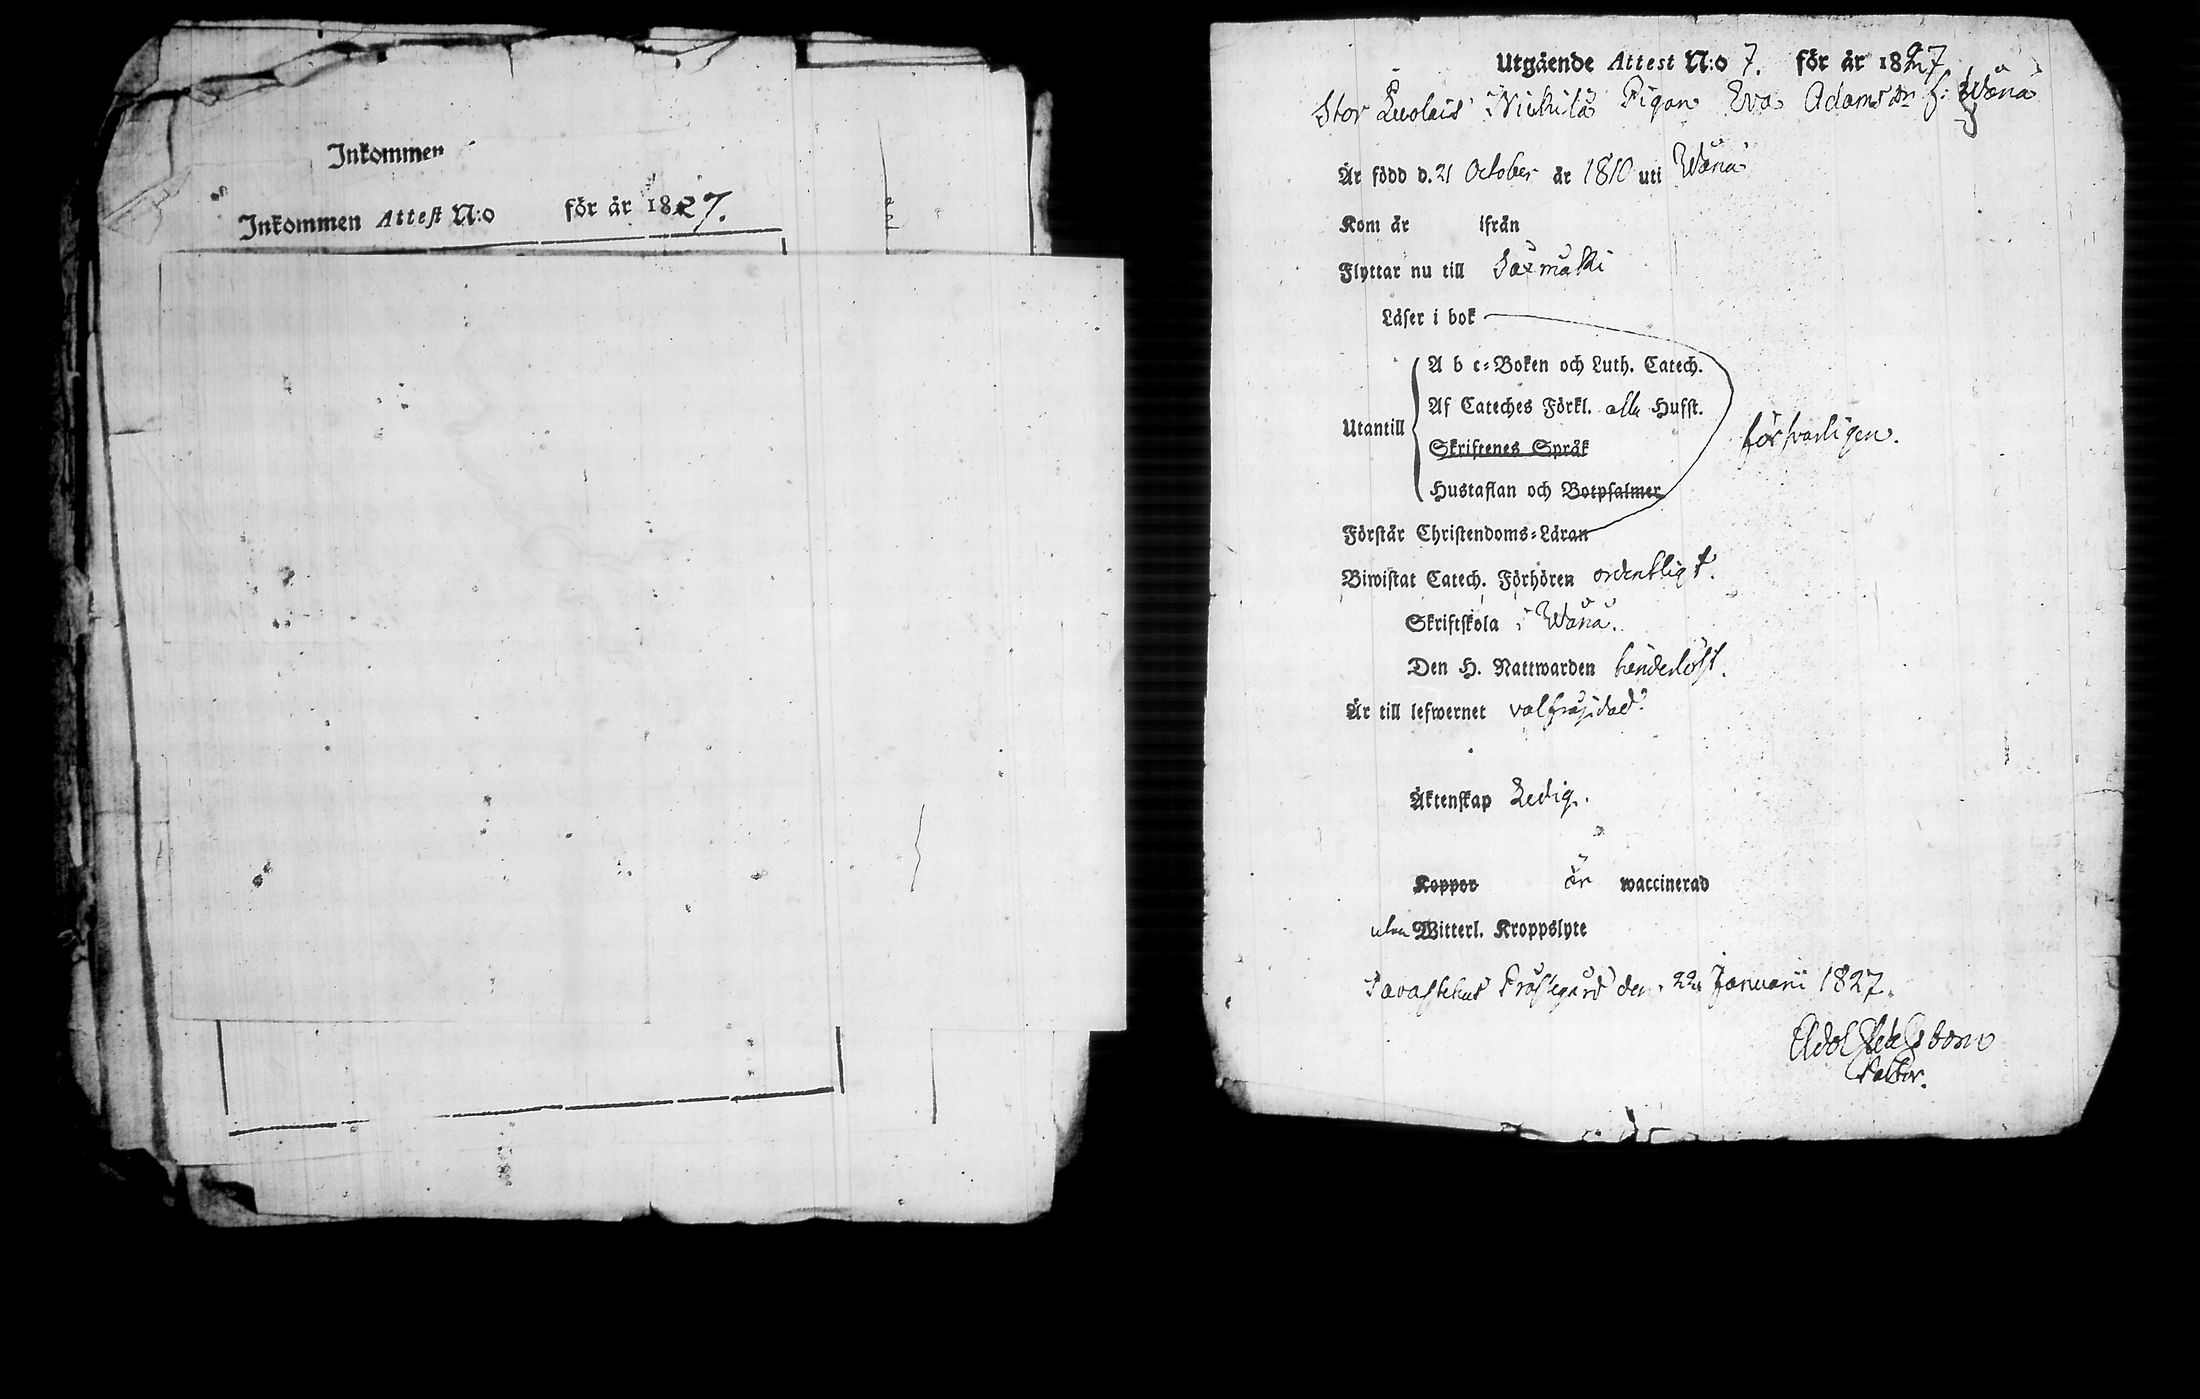 Inkommen
Inkommen Attest N:o för år 1827.
Utgående Attest N:o 7. för år 1827
Stor Luolais Nickilä Pigan Eva Adamsdr f: Wånå
Är född d. 21 October år 1810 uti Wånå
Kom år ifrån
Flyttar nu till Saxmäki
Läser i bok
A b c-Boken och Luth. Catech.
Af Cateches Förkl. alla Hufst.
Utantill
försvarligen.
Skriftenes Språk
Hustaflan och Botpsalmer
Förstår Christendoms-Läran
Biwistat Catech. Förhören ordentligt.
Skriftskola i Wånå.
Den H. Nattwarden
Är till lefwernet välfräjdad.
Äktenskap Ledig.
Koppor är waccinerad
utan Witterl. Kroppslyte
Tavastehus Prästegård den 22 Januarii 1827.
Pastor.